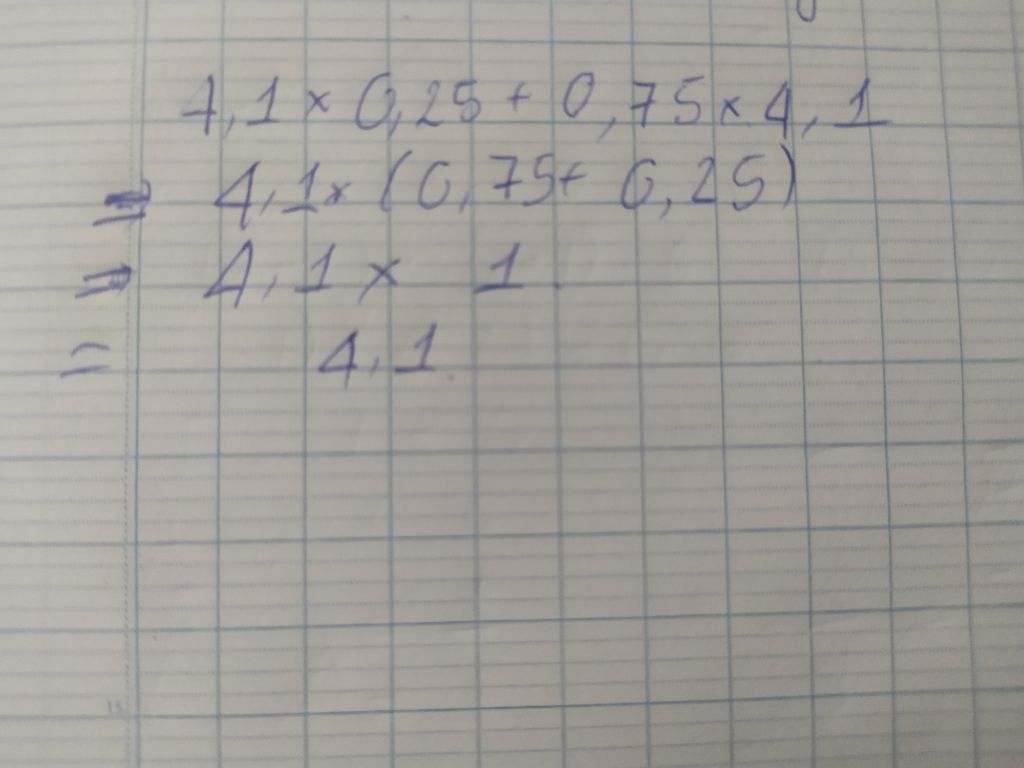 4,1 × 0,25 + 0,75 × 4,1
= 4,1 × (0,75 + 0,25)
= 4,1 × 1
= 4,1